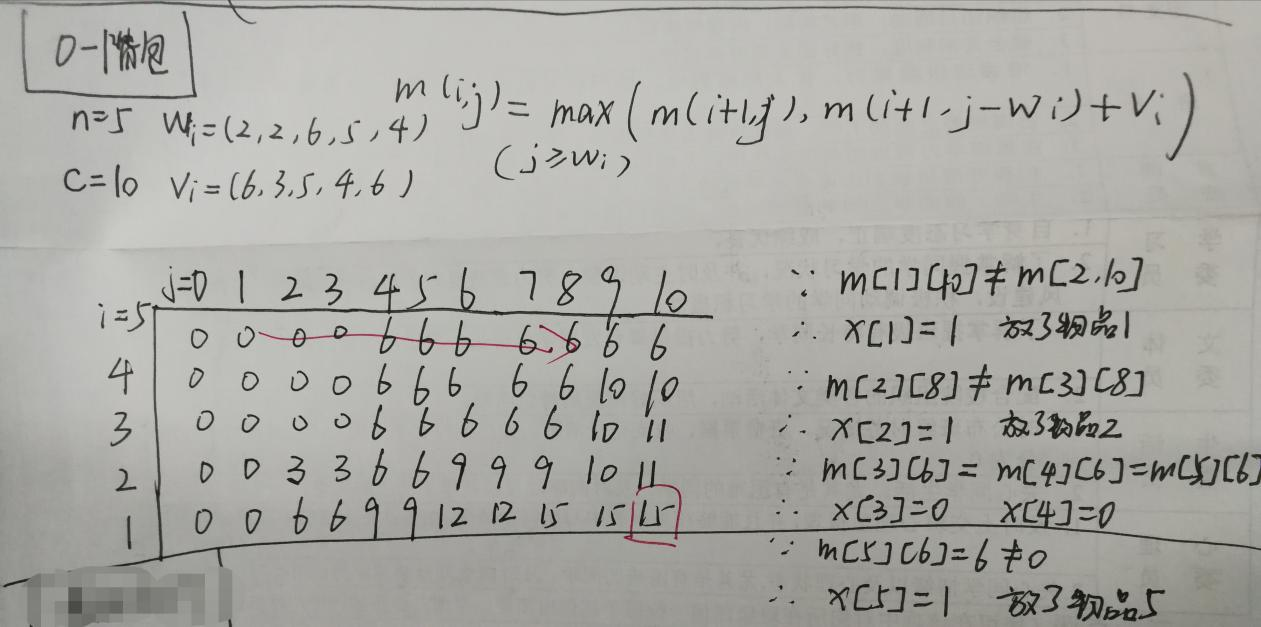 0-1背包
n=5 Wi=(2,2,6,5,4)
C=10 Vi=(6,3,5,4,6)
m(i,j)=max(m(i+1,j),m(i+1,j-Wi)+Vi)
(j≥Wi)
j=0 1 2 3 4 5 6 7 8 9 10
i=5 0 0 0 0 6 6 6 6 6 6 6
4 0 0 0 0 6 6 6 6 6 10 10
3 0 0 0 0 6 6 6 6 6 10 11
2 0 0 3 3 6 6 9 9 9 10 11
1 0 0 6 6 9 9 12 12 15 15 15
∵ m[1][10]≠m[2,10]
∴ x[1]=1 放了物品1
∵ m[2][8]≠m[3][8]
∴ x[2]=1 放了物品2
∵ m[3][6]=m[4][6]=m[5][6]
∴ x[3]=0 x[4]=0
∵ m[5][6]=6≠0
∴ x[5]=1 放了物品5